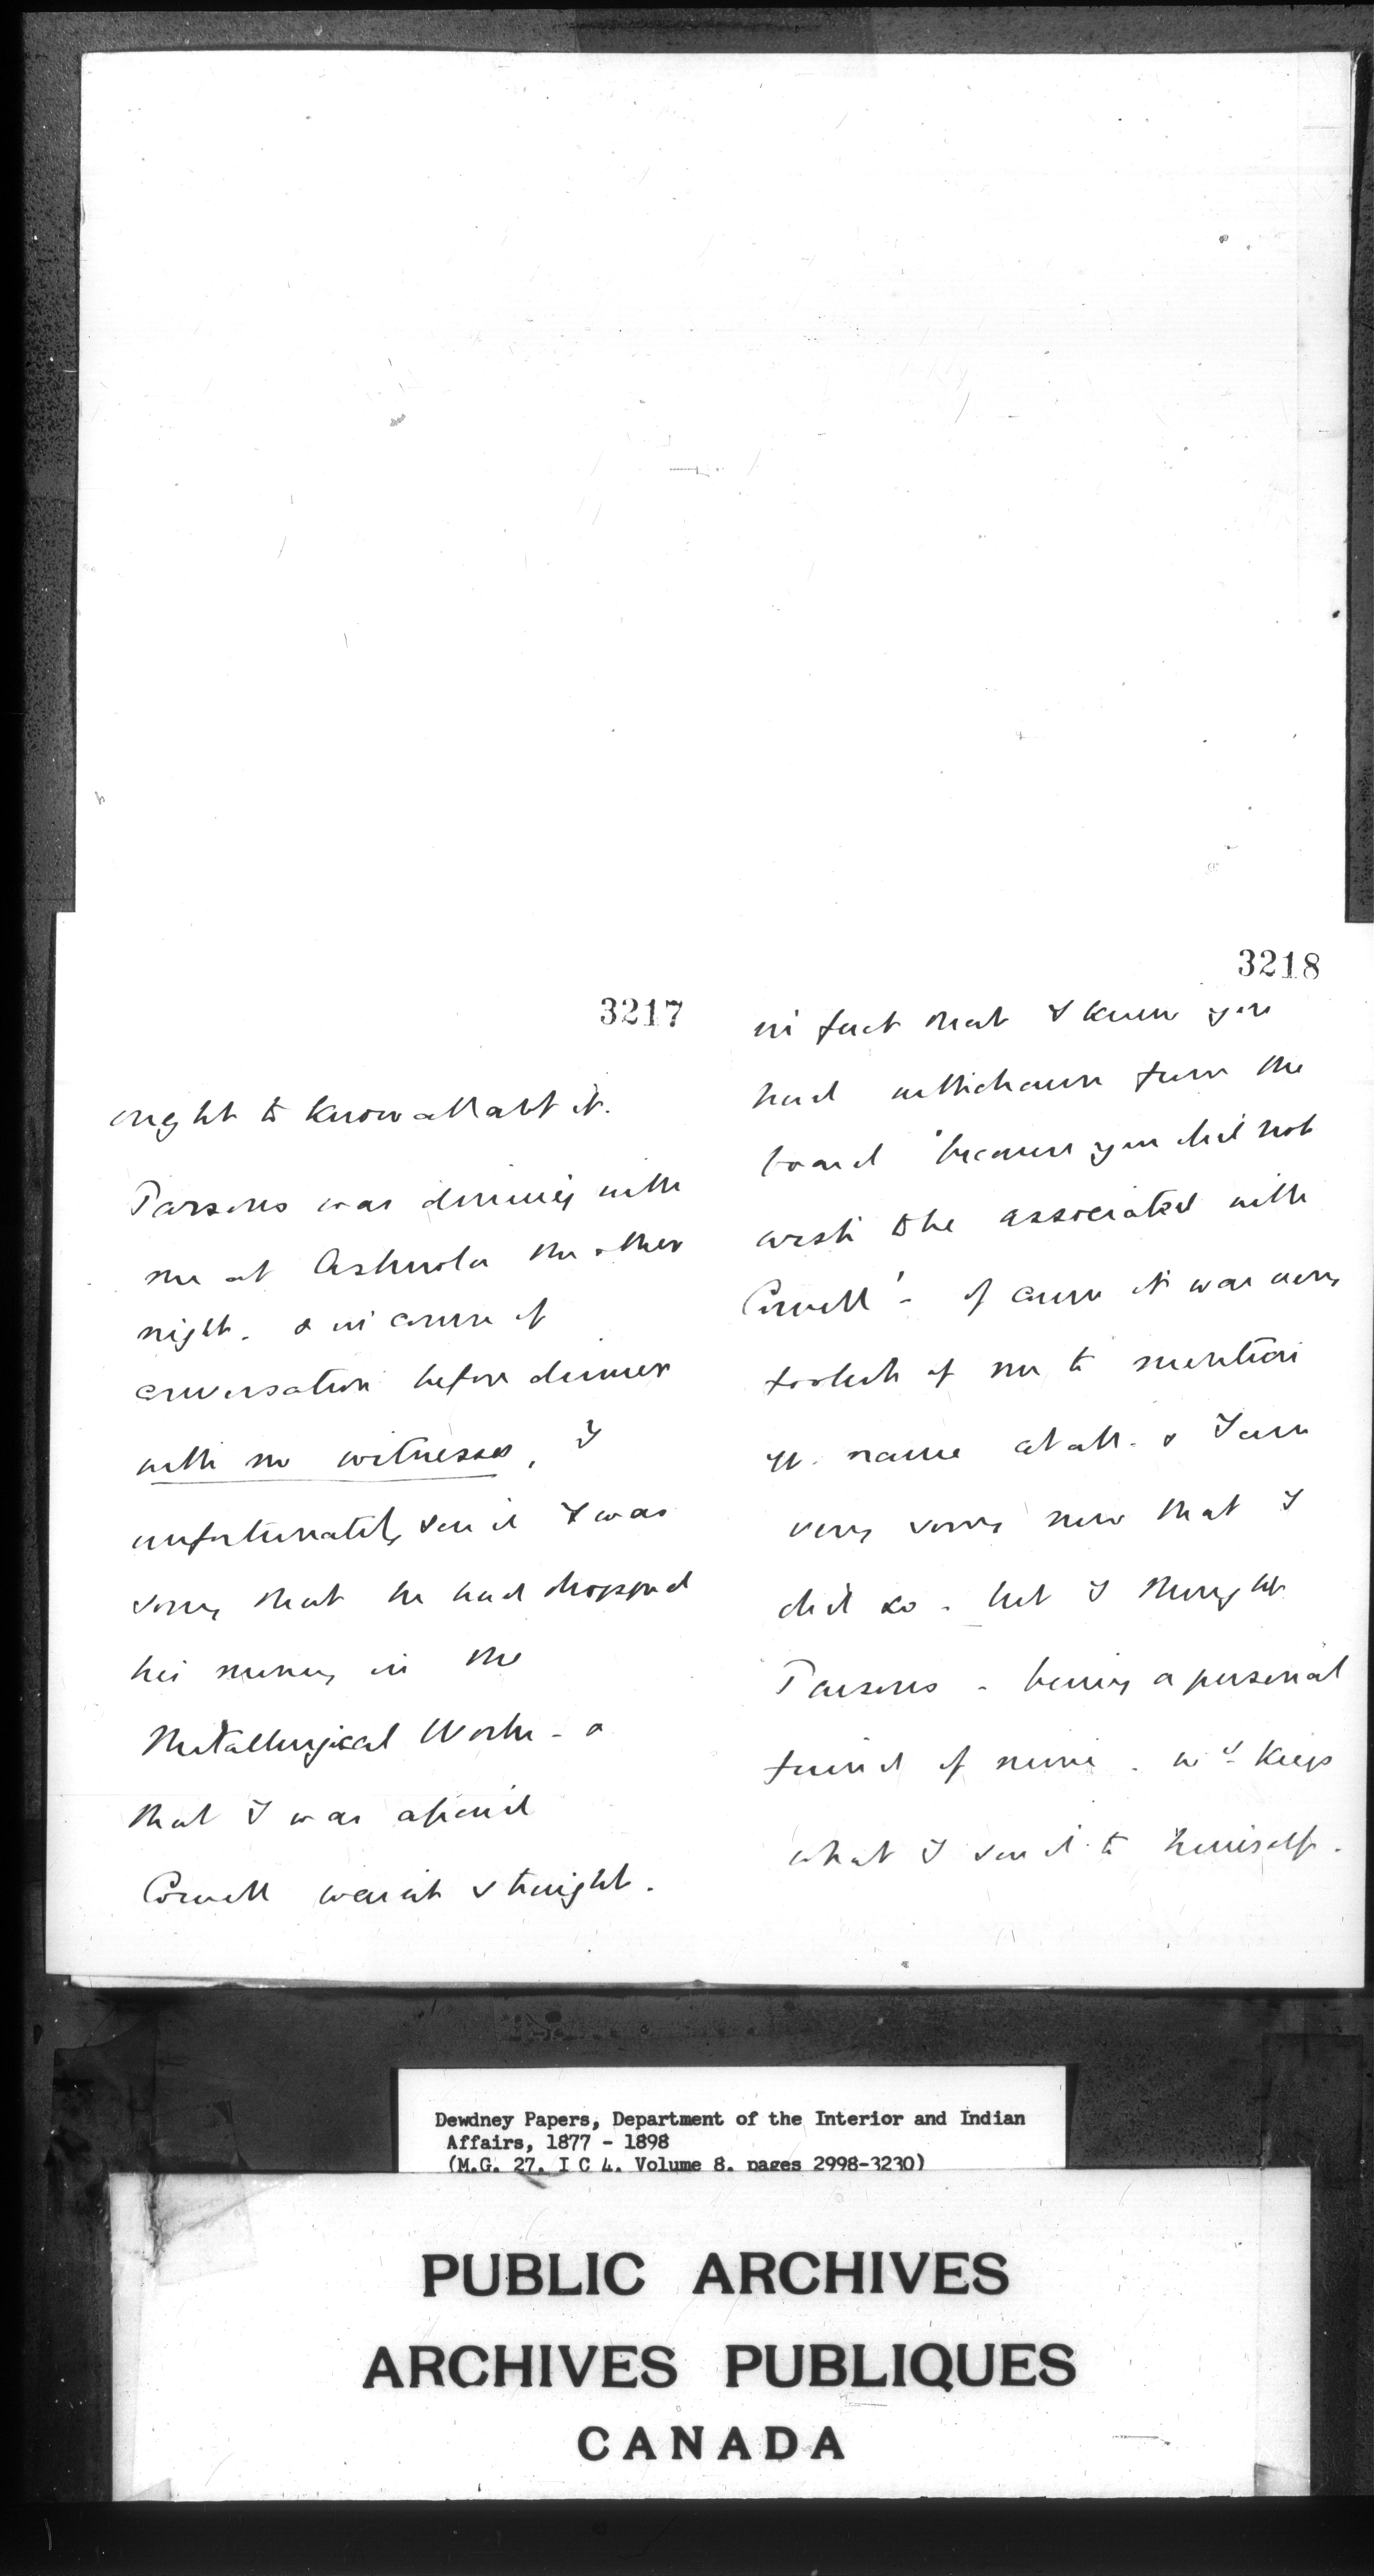 3217
ought to know all abt it.
Parsons was dining with
me at Ashnola the other
night. & in course of
conversation before dinner
with no witnesses, I
unfortunately said I was
sorry that he had dropped
his money in the
Metallurgical Works - &
that I was afraid
Cowell wasnt straight.
3218
in fact that I knew you
had withdrawn from the
board "because you did not
wish to be associated with
Cowell" - of course it was very
foolish of me to mention
yr. name at all. & I am
very sorry now that I
did so - but I thought
Parsons - being a personal
friend of mine - wd keep
what I said to himself.
Dewdney Papers, Department of the Interior and Indian
Affairs, 1877 - 1898
(M.G. 27, I C 4, Volume 8, pages 2998-3230)
PUBLIC ARCHIVES
ARCHIVES PUBLIQUES
CANADA